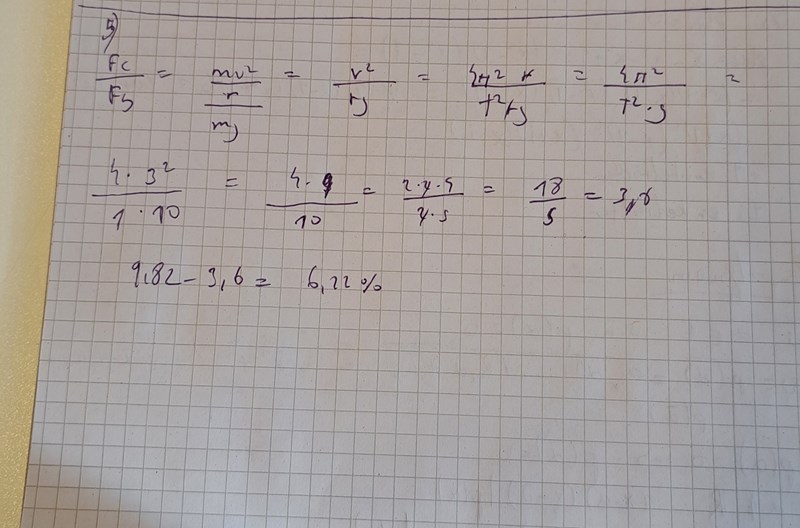 5)
Fc/Fg = mv²/r/mg = v²/rg = 4π² r/T² rg = 4π²/T²·g =
4·3²/1·10 = 4·9/10 = 2·2·9/2·5 = 18/5 = 3,6
9,82 - 3,6 = 6,22%